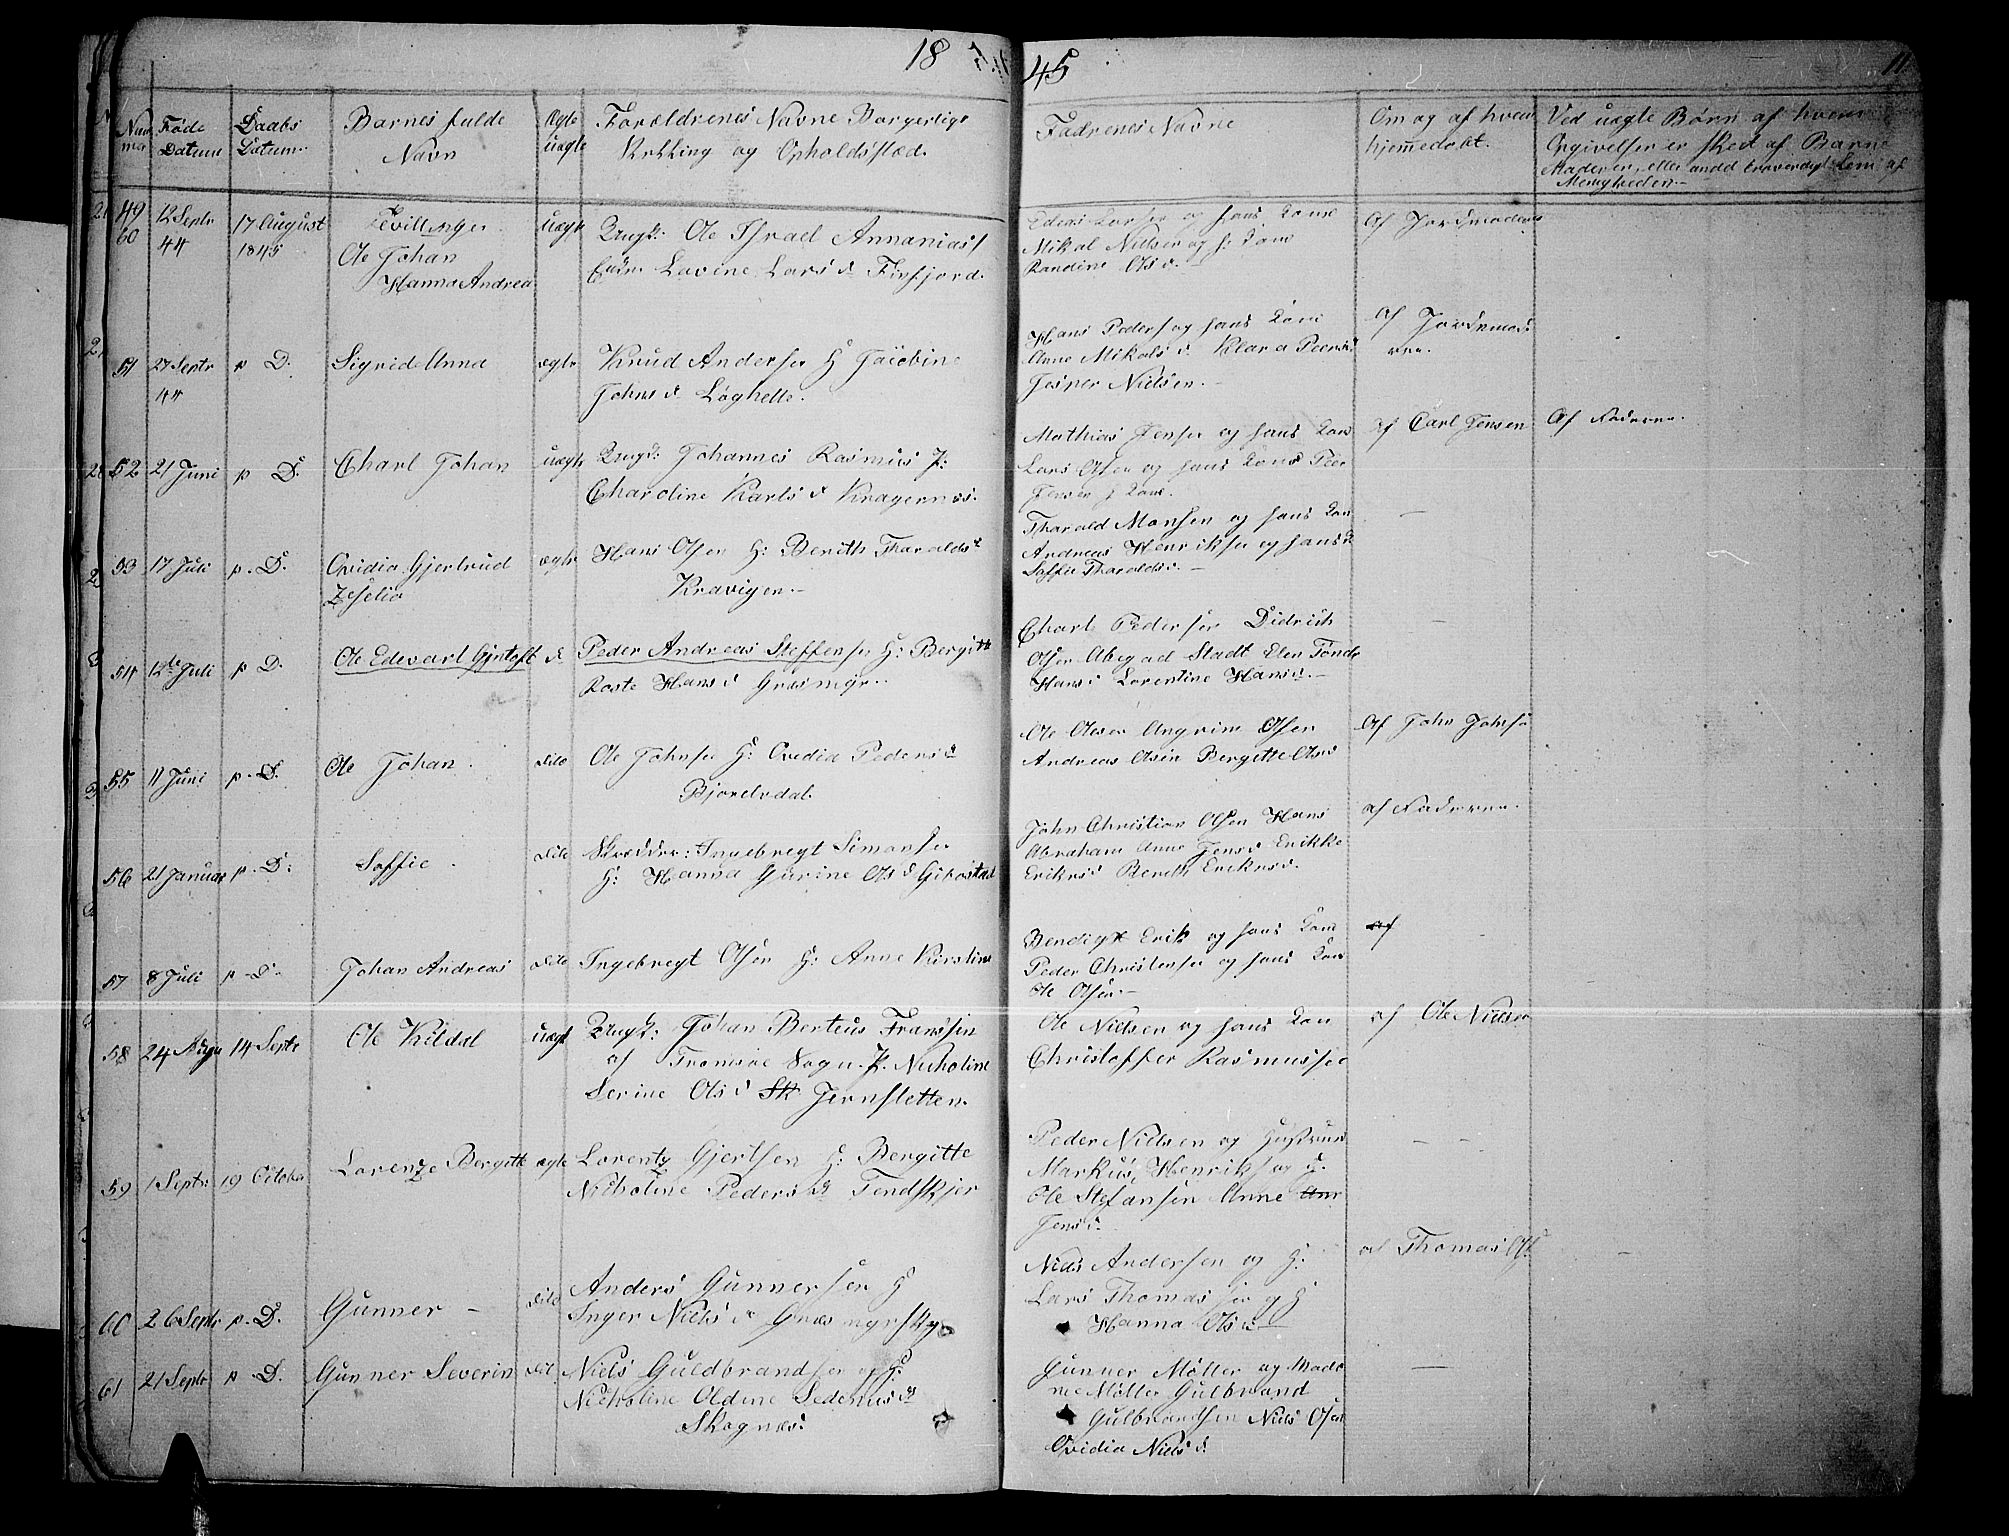 18 45
11
Num
mer
Føde
Datum
Daabs
Datum.
Barnes fulde
Navn
Ægte
uægte
Forældrenes Navne Borgerlige
og Opholdsstæd.
Fadrenes Navne
Om og af hvem
hjemmedøbt.
Ved uægte Børn af hvem
Opgivelser er sked af Barne
Moderen, eller andet troværdigt Lem af
Menigheden
49
60
12 Septr
44
17 August
1845
Tvillinger
Ole Johan
Hanna Andrea
uægte
Ungk: Ole Israel Annanias
Lovine Lars d. Finfjord.
og hans Kone
Mikal Nielsen og h: Kone
Randine Ols d.
Af Jordmoderen
51
27 Septr
44
p D.
Sigrid Anna
ægte
Knud Andersen H Jacobine
Johns d. Løghette.
Hans Peders og hans Kone
Anne Mikals d. Klara Peers d
Jesper Nielsen.
Af Jordemod
52
21 Juni
p D.
Charl Johan
uægte
Ungk: Johannes Rasmus P:
Charoline Karls d Kragernes.
Mathias Jensen og hans Kone
Lars Olsen og hans Kone Peer
Jensen h Kone.
af Carl Jensen
Af Faderen.
53
17 Juli
p. D.
Ovidia Gjertrud
Zeselia
ægte
Hans Olsen H: Berith Tharalds d
Kravigen.
Tharald Monsen og hans Kone
Andreas Henriksen og hans K
Soffie Tharalds d.
54
12te Juli
p D.
Ole Edevart Gjetoft
d
Peder Andreas Steffensen H: Bergitte
Roste Hans d Græsmyr.
Charl Pedersen Didrich
Olsen Stadt Elen
Hans d Lorentine Hans d.
55
11 Juni
p. D.
Ole Johan.
dito
Ole Johnsen H: Ovedia Peders d
Bjorelvdal.
Ole Olesen Angrim Olsen
Andreas Olsen Bergitte Ols d
Af John Johnsen
56
21 Januar
p. D:
Soffie.
dito
Skrædder: Ingebregt Simonsen
H: Hanna Gurine Ols d Gibostad
John Christian Olsen Hans
Abraham Anne Jens d Erikke
Eriks d Berith Eriks d.
af Faderen.
57
8 Juli
p D.
Johan Andreas
dito
Ingebregt Olsen H: Anne Kirstine
Bendigt Erik og hans Kone
Peder Christensen og hans Kone
Ole Olsen.
af
58
24 Augu
14 Septr
Ole Kildal
uægt
Ungk: Johan Berteus Franssen
af Tromsøe Sogn. P. Nicholine
Serine Ols d Sk Jernsletten.
Ole Nielsen og hans Kone
Christoffer Rasmussen
af Ole Nielsen
59
1 Septr:
19 October
Lorenze Bergitte
ægte
Lorentz Gjertsen H: Bergitte
Nicholine Peders d Tendskjer
Peder Nielsen og Hustrue
Markus Henriks og H.
Ole Stefansen Anne Ane
Jens d.
60
26 Septr
p. D.
Gunner
dito
Anders Gunnersen H
Inger Niels d
Niels Andersen og H:
Lars Thomas sen og H
Hanna Ols d
af Thomas Ols.
61
21 Septr
p D.
Gunner Severin
dit.
Niels Guldbrandsen og H:
Nicholine Oldine Sedenius d
Skognæs:
Gunner Møller og Mada
me Møller Gulbrand
Gulbrandsen Niels Olsen
Ovidia Niels d.